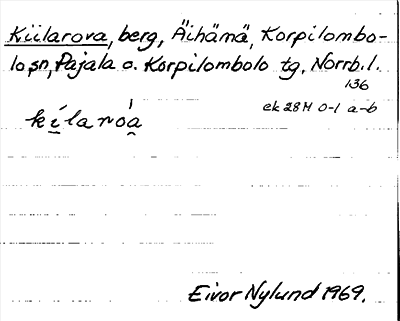 Kiilarova, berg, Äihämä, Korpilombo-
lo sn, Pajala o. Korpilombolo tg, Norrb. l.
136
ek 28M 0-1 a-b
Eivor Nylund 1969.